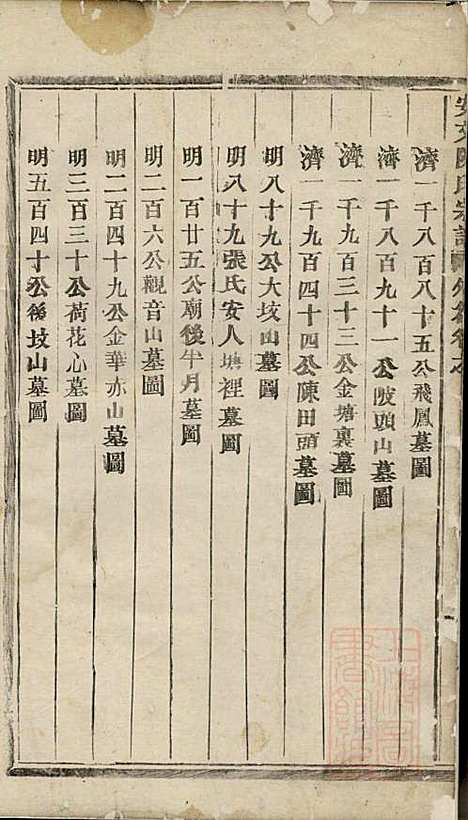 安文陳氏宗譜外卷之
濟一千八百八十五公飛鳳墓圖
濟一千八百九十一公陂頭山墓圖
濟一千九百三十三公金塘裏墓圖
濟一千九百四十四公陳田頭墓圖
明八十九公大坟山墓圖
明八十九張氏安人塘裡墓圖
明一百廿五公廟後半月墓圖
明二百六公觀音山墓圖
明二百四十九公金華赤山墓圖
明三百三十公荷花心墓圖
明五百四十公後坟山墓圖
上海圖書館藏